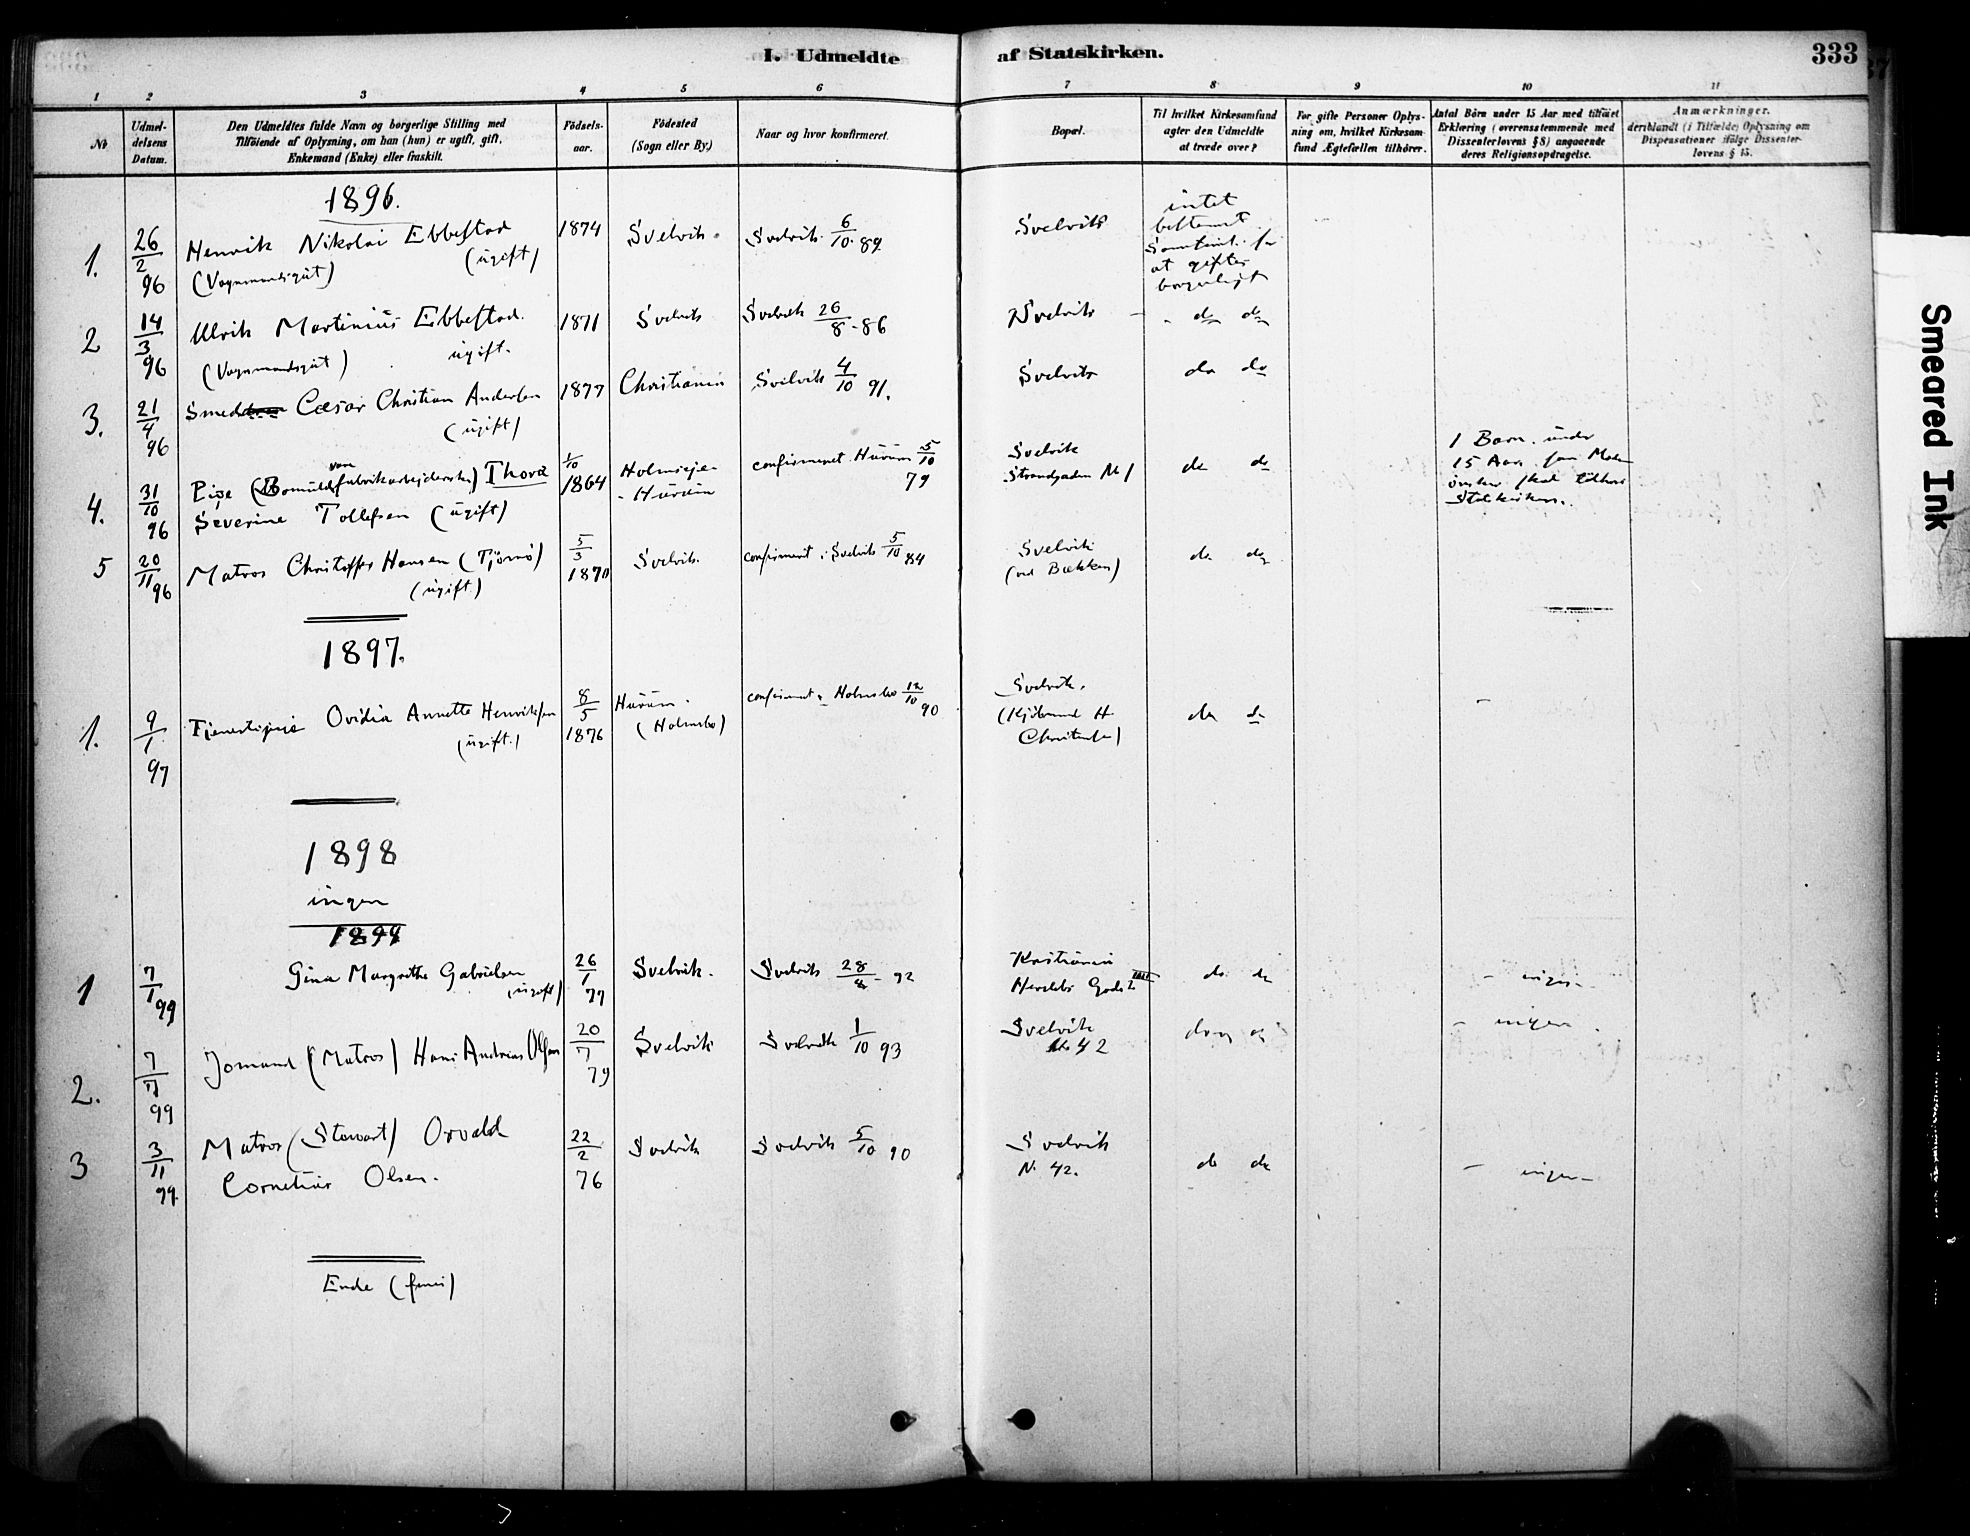 I. Udmeldte af Statskirken. 333
1 2 3 4 5 6 7 8 9 10 11
No
Udmeldelsens Datum.
Den Udmeldtes fulde Navn og borgerlige Stilling med
Tilföiende af Oplysning, om han (hun) er ugift, gift,
Enkemand (Enke) eller fraskilt.
Födselsaar.
Födested
(Sogn eller By.)
Naar og hvor konfirmeret.
Bopæl.
Til hvilket Kirkesamfund
agter den Udmeldte
at træde over?
For gifte Personer Oplys-
ning om, hvilket Kirkesam-
fund Ægtefællen tilhörer.
Antal Börn under 15 Aar med tilföiet
Erklæring (overensstemmende med
Dissenterlovens § 8) angaaende
deres Religionsopdragelse.
Anmærkninger,
deriblandt (i Tilfælde) Oplysning om
Dispensationer ifölge Dissenter-
lovens § 15.
1896.
1. 26/2 96 Henrik Nikolai Ebbestad (ugift) 1874 Svelvik. Svelvik 6/10 89. Svelvik
(Vognmandsgut)
intet
bestemt
Samfund. for
at giftes
borgerligt
2 14/3 96 Ulrik Martinius Ebbestad. 1871 Svelvik Svelvik 26/8-86 Svelvik - do do
(Vognmandsgut) ugift.
3. 21/4 96 Smed Cæsar Christian Andersen 1877 Christiania Svelvik 4/10 91. Svelvik do do
(ugift)
4. 31/10 96 Pige (Bomuldsvarefabrikarbejderske) Thora 1/10 1864 Holmsejen - Hurum confirmeret Hurum 5/10 79 Svelvik Strandgaden No 1 do do
Severine Tollefsen (ugift)
1 Barn under
15 Aar som Moder
ønsker skal tilhøre
Statskirken.
5 20/11 96 Matros Christoffer Hansen (Tjømø) 5/3 1870 Svelvik. confirmeret i Svelvik 5/10 84 Svelvik do do
(ugift) (ved Bækken)
1897.
1. 9/1 97 Tjenestepige Ovidia Annette Henriksen 8/5 1876 Hurum. (Holmsbo) confirmeret i Holmsbo 12/10 90 Svelvik. do do -
(ugift.) (Kjøbmand H. Christensen)
1898
ingen
1899
1 7/1 99 Gina Margrethe Gabrielsen 26/1 77 Svelvik. Svelvik 28/8-92 Kristiania do do - ingen -
(ugift)
2. 7/7 99 Jomand (Matros) Hans Andreas Olsen 20/7 79 Svelvik Svelvik 1/10 93 Svelvik No 42 do - ingen
3 3/11 99. Matros (Stewart) Osvald 22/2 76 Svelvik Svelvik 5/10 90 Svelvik do do - ingen -
Cornelius Olsen. N. 42.
Ende (finis)
Smeared Ink